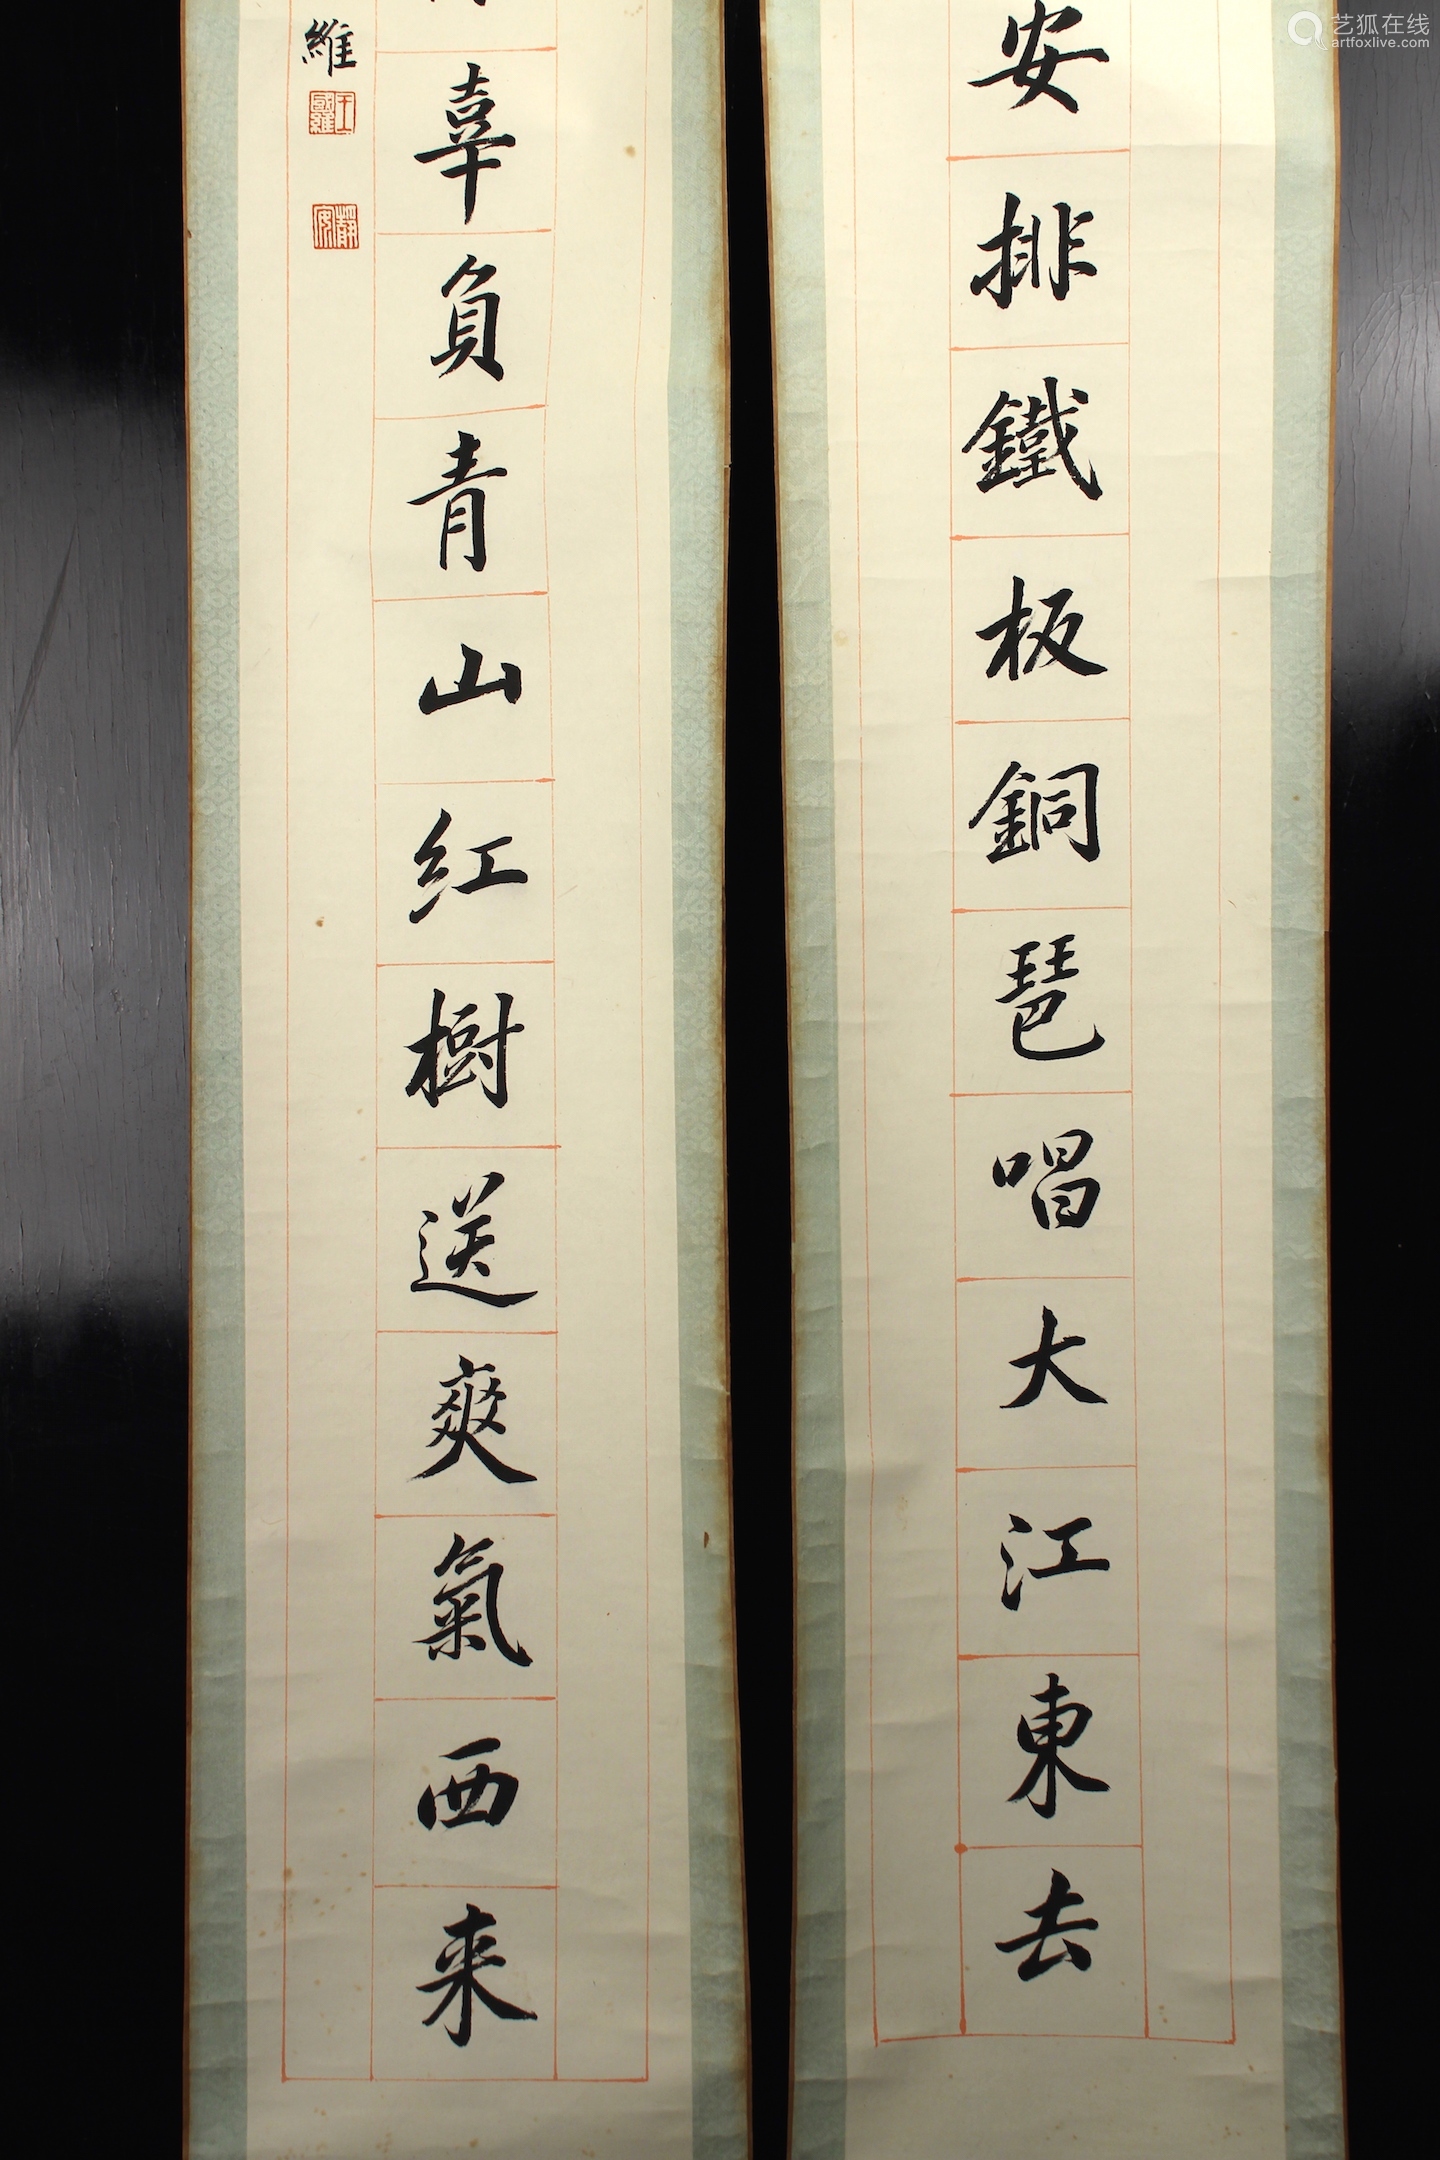 安排鐵板銅琶唱大江東去
辜負青山紅樹送爽氣西来
維
王國維
靜安
艺狐在线
artfoxlive.com